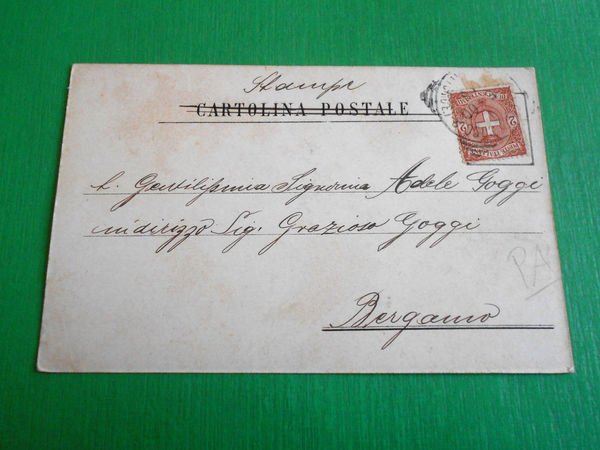 Stampe
CARTOLINA POSTALE
A. Gentilissima Signorina Adele Goggi
indirizzo Sig. Grazioso Goggi
Bergamo
PA
2 2